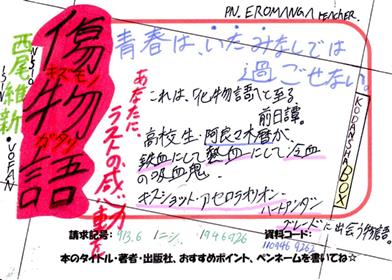 P.N. EROMANGA TEACHER.
西尾維新
NISIO ISIN
傷物語
キズモノガタリ
青春は、いたみなしでは
過ごせない。
あなたに、
ラストの感動を
これは、『化物語』へと至る、
前日譚。
高校生・阿良々木暦が、
鉄血にして熱血にして冷血
の吸血鬼・
キスショット・アセロラオリオン・
ハートアンダー
ブレードに出会う物語。
KODANSHA BOX
請求記号: 913.6 ニシ 1946926
資料コード:
110946 9262
本のタイトル・著者・出版社、おすすめポイント、ペンネームを書いてね☆